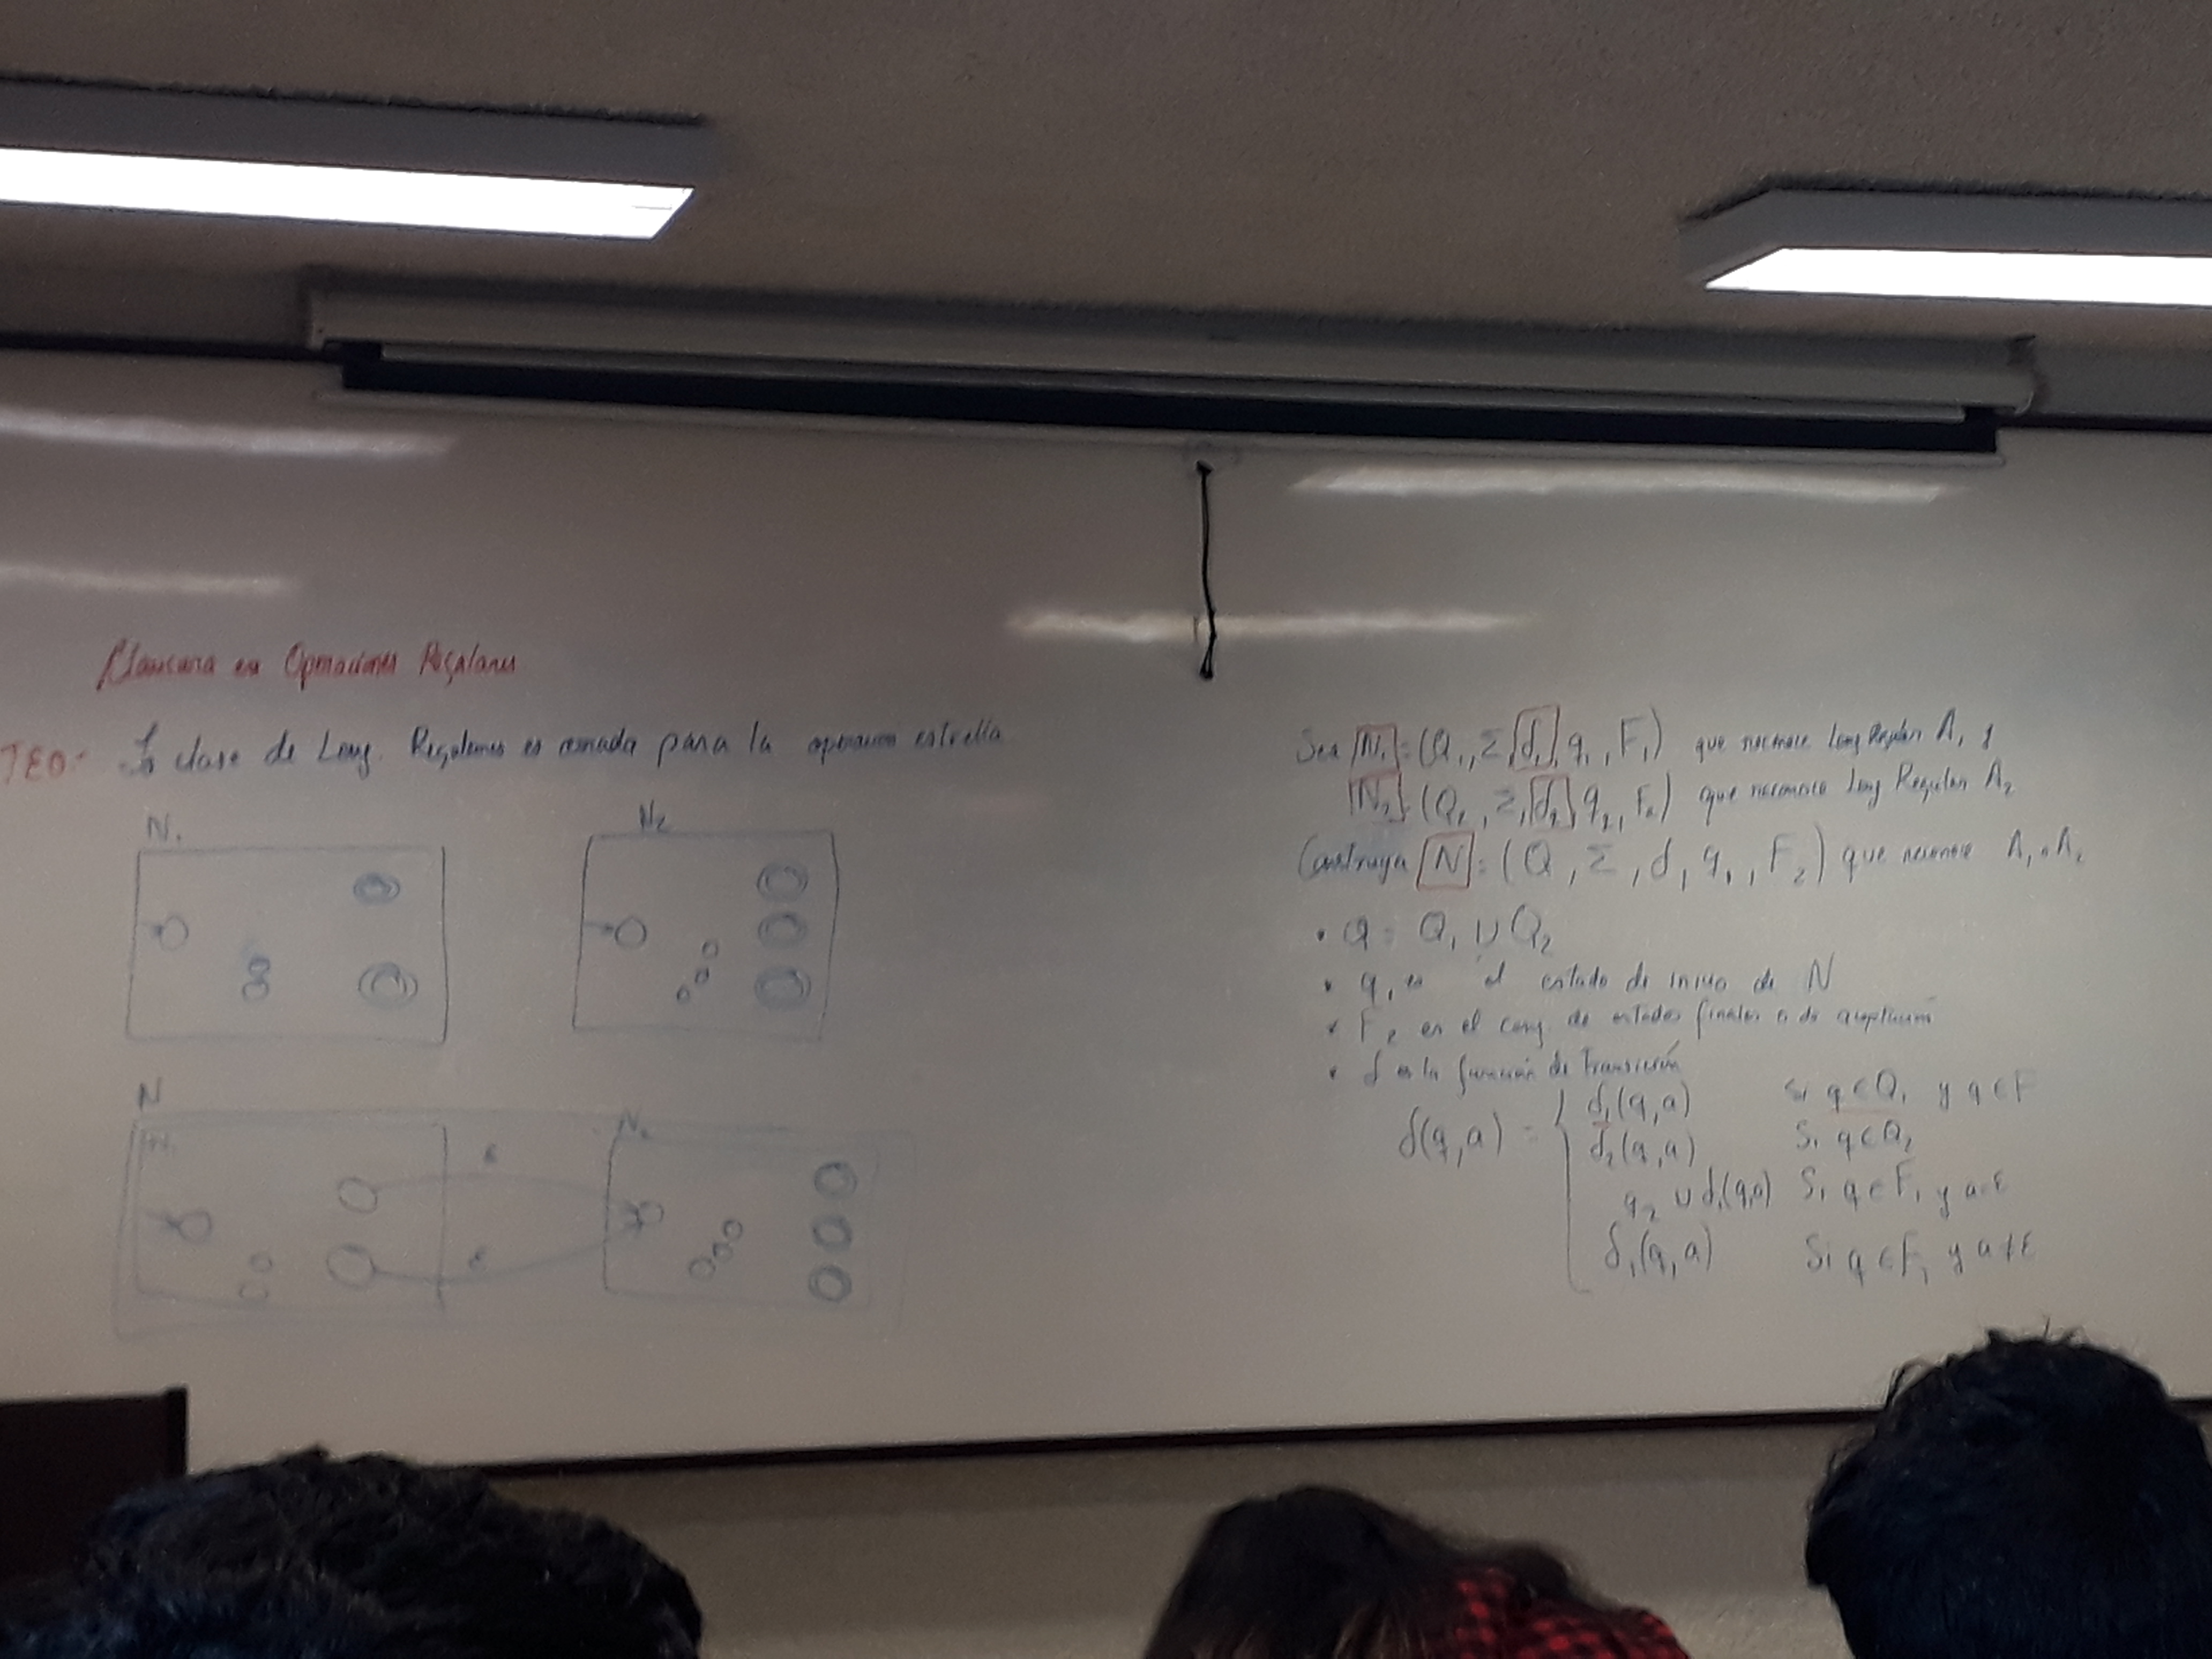 Clausura en Operaciones Regulares
TEO:- La clase de Leng. Regulares es cerrada para la operacion estrella
N1
N2
N
N1
N2
ε
ε
Sea N1: (Q1, Σ, δ1, q1, F1) que reconoce Leng Regular A1 y
N2: (Q2, Σ, δ2, q2, F2) que reconoce Leng Regular A2
Construya N = (Q, Σ, δ, q1, F2) que reconoce A1 ∘ A2
• Q = Q1 ∪ Q2
• q1 es el estado de inicio de N
• F2 es el conj. de estados finales o de aceptación
• δ es la función de Transición
δ(q,a) = { δ1(q,a) Si q ∈ Q1 y q ∈ F
δ2(q,a) Si q ∈ Q2
q2 ∪ δ1(q,a) Si q ∈ F1 y a=ε
δ1(q,a) Si q ∈ F1 y a≠ε